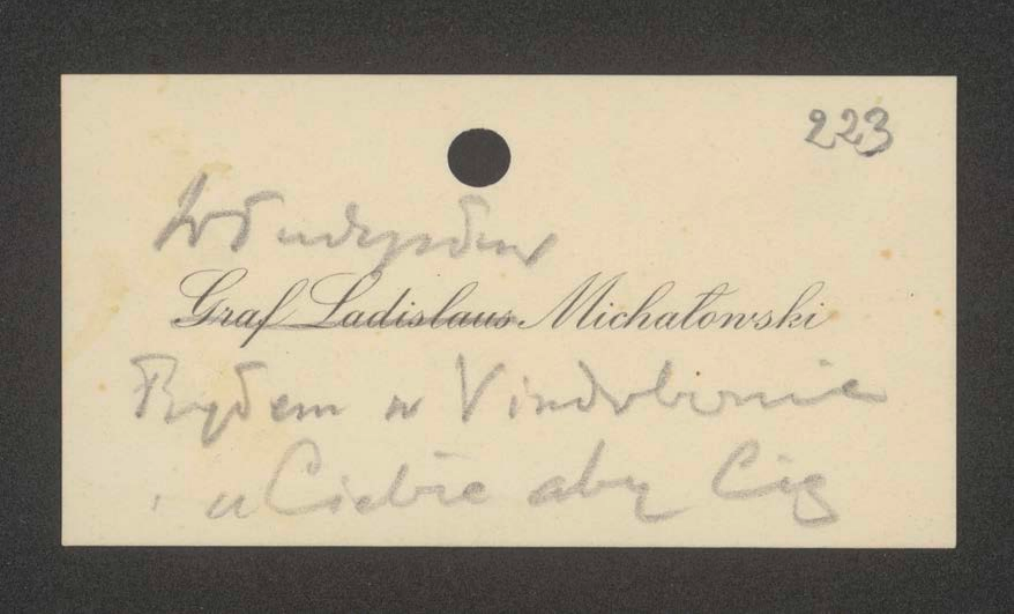 223
Graf Ladislaus Michałowski
Byłem w Vindobonie
u Ciebie aby Cię